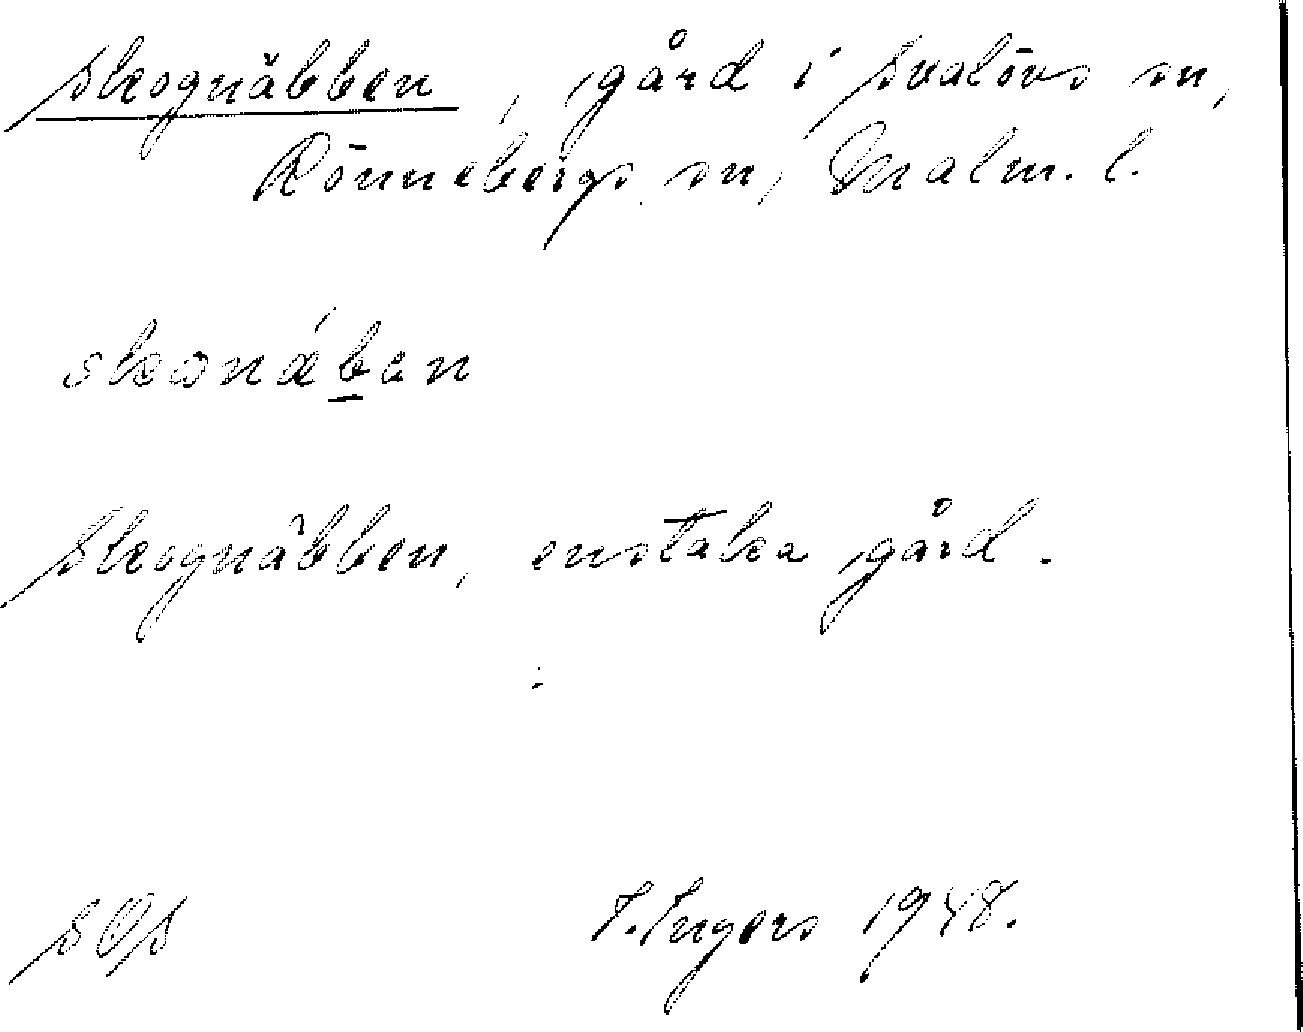 Skognäbben, gård i Svalövs sn,
Rönnebergs sn, Malm. l.
skɷnǽben
Skognäbben, enstaka gård.
SOS I. Ingers 1948.